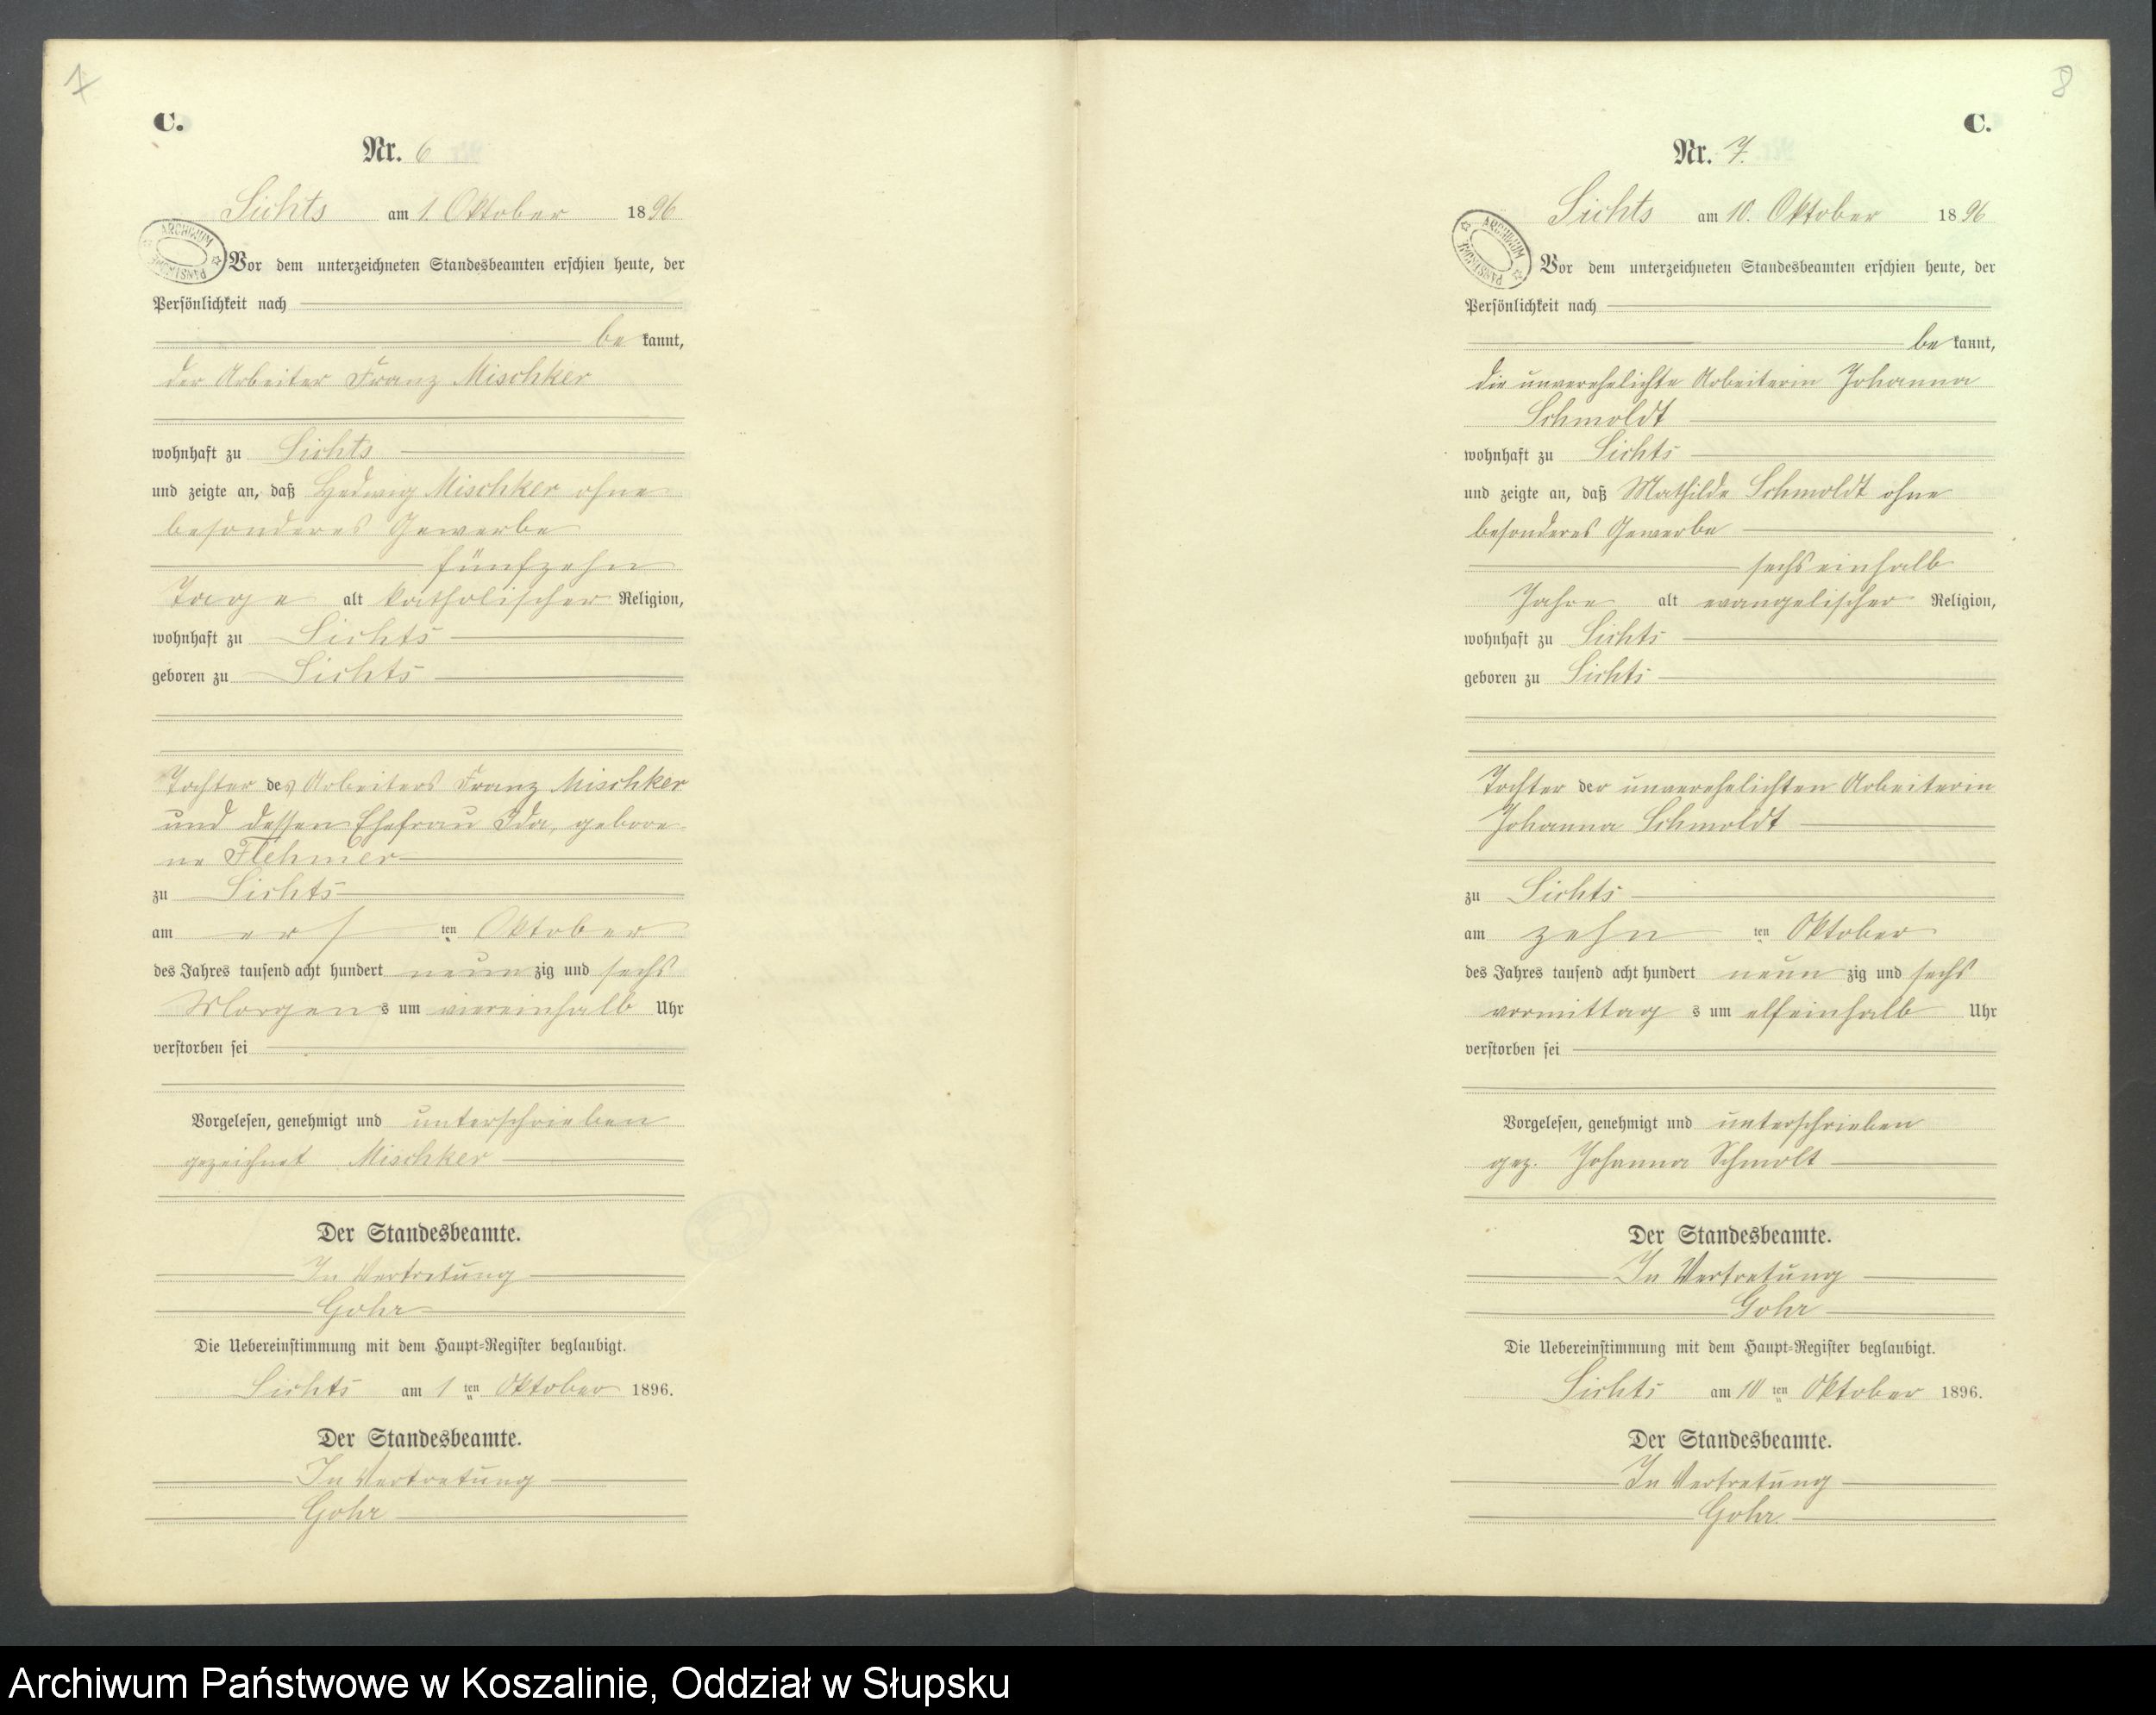 7
C.
Nr. 6
Lichts am 1. Oktober 1896
ARCHIWUM PAŃSTWOWE
Vor dem unterzeichneten Standesbeamten erschien heute, der
Persönlichkeit nach
be kannt,
der Arbeiter Franz Mischker
wohnhaft zu Lichts
und zeigte an, daß Hedwig Mischker ohne
besonderes Gewerbe
fünfzehn
Tage alt katholischer Religion,
wohnhaft zu Lichts
geboren zu Lichts
Tochter des Arbeiters Franz Mischker
und dessen Ehefrau Ida, gebore
ne Flehmer
zu Lichts
am ers ten Oktober
des Jahres tausend acht hundert neun zig und sechs
Morgen s um viereinhalb Uhr
verstorben sei
Vorgelesen, genehmigt und unterschrieben
gezeichnet Mischker
Der Standesbeamte.
In Vertretung
Gohr
Die Uebereinstimmung mit dem Haupt-Register beglaubigt.
Lichts am 1 ten Oktober 1896.
Der Standesbeamte.
In Vertretung
Gohr
8
C.
Nr. 7.
Lichts am 10. Oktober 1896
ARCHIWUM PAŃSTWOWE
Vor dem unterzeichneten Standesbeamten erschien heute, der
Persönlichkeit nach
be kannt,
die unverehelichte Arbeiterin Johanna
Schmoldt
wohnhaft zu Lichts
und zeigte an, daß Mathilde Schmoldt ohne
besonderes Gewerbe
sechs einhalb
Jahre alt evangelischer Religion,
wohnhaft zu Lichts
geboren zu Lichts
Tochter der unverehelichten Arbeiterin
Johanna Schmoldt
zu Lichts
am zehn ten Oktober
des Jahres tausend acht hundert neun zig und sechs
vormittag s um elfeinhalb Uhr
verstorben sei
Vorgelesen, genehmigt und unterschrieben
gez. Johanna Schmolt
Der Standesbeamte.
In Vertretung
Gohr
Die Uebereinstimmung mit dem Haupt-Register beglaubigt.
Lichts am 10 ten Oktober 1896.
Der Standesbeamte.
In Vertretung
Gohr.
Archiwum Państwowe w Koszalinie, Oddział w Słupsku